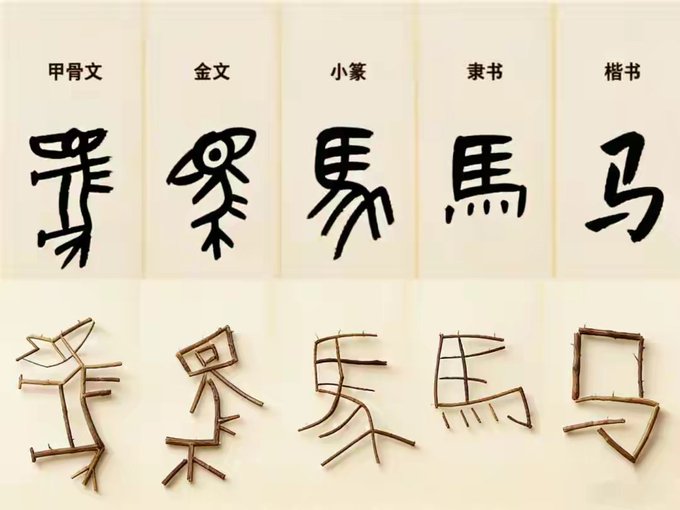 甲骨文 金文 小篆 隶书 楷书
馬 馬 馬 馬 马